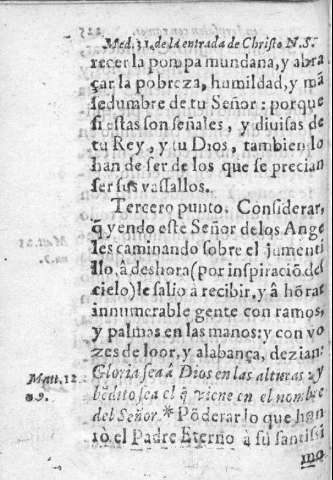 Med. 31. de la entrada de Christo N.S.
recer la pompa mundana, y abra
çar la pobreza, humildad, y mã
sedumbre de tu Señor: porque
si estas son señales, y diuisas de
tu Rey, y tu Dios, tambien lo
han de ser de los que se precian
ser sus vassallos.
Tercero punto. Considerar,
q̃ yendo este Señor de los Ange
les caminando sobre el jumenti
llo, â deshora (por inspiraciõ del
cielo) le salio a recibir, y â hõrar
innumerable gente con ramos,
y palmas en las manos: y con vo
zes de loor, y alabança, dezian:
Gloria sea â Dios en las alturas: y
Matt. 12.
bẽdito sea el q̃ viene en el nombre
n 9.
del Señor. * Põderar lo que han
rò el Padre Eterno â su santissi
mo